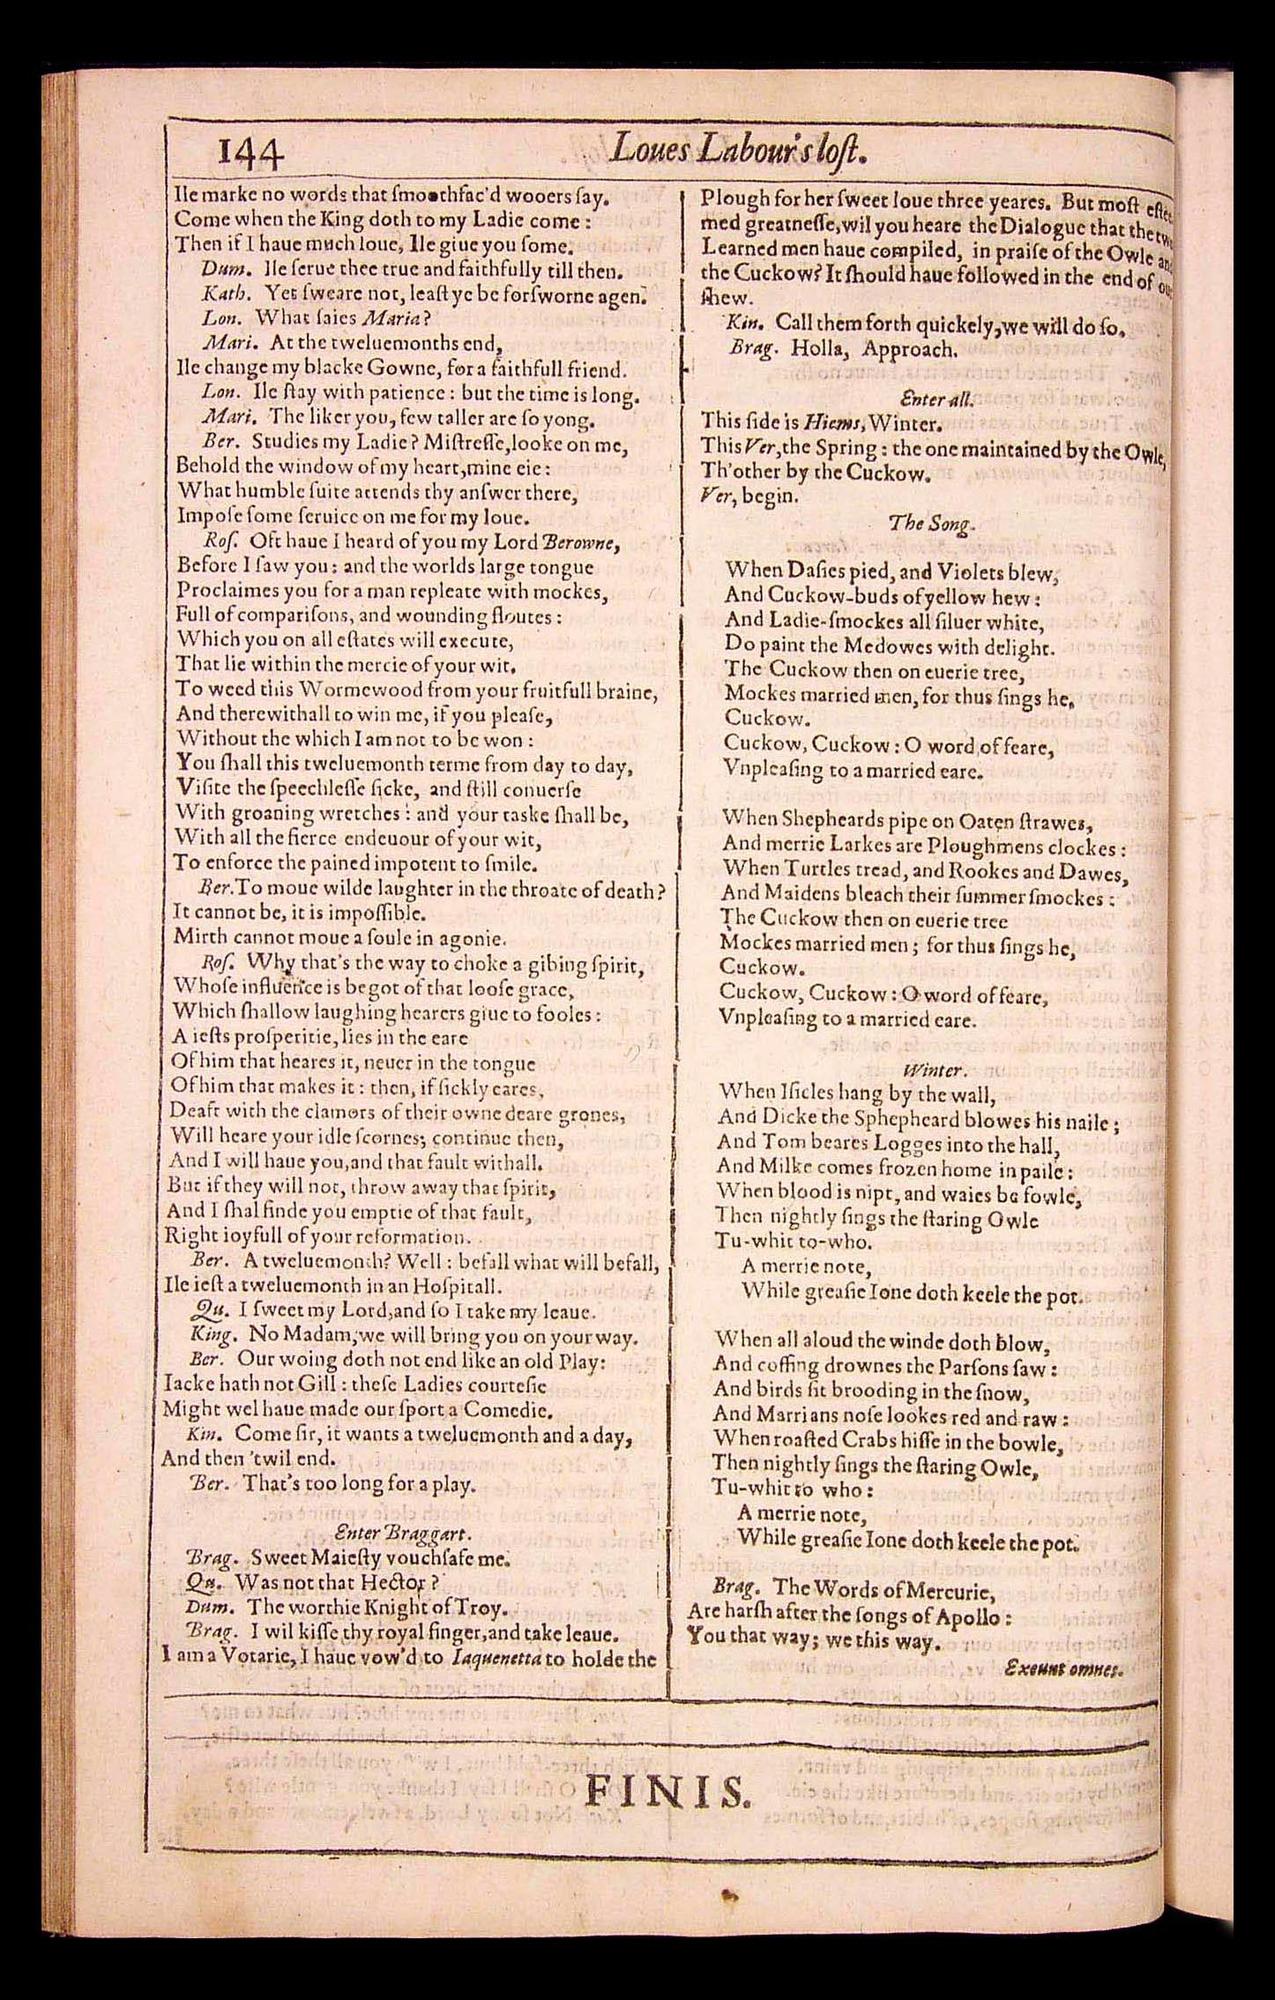 144
Loues Labour's lost.
Ile marke no words that smoothfac'd wooers say.
Come when the King doth to my Ladie come:
Then if I haue much loue, Ile giue you some.
Dum. Ile serue thee true and faithfully till then.
Kath. Yet sweare not, least ye be forsworne agen.
Lon. What saies Maria?
Mari. At the tweluemonths end,
Ile change my blacke Gowne, for a faithfull friend.
Lon. Ile stay with patience: but the time is long.
Mari. The liker you, few taller are so yong.
Ber. Studies my Ladie? Mistresse, looke on me,
Behold the window of my heart, mine eie:
What humble suite attends thy answer there,
Impose some seruice on me for my loue.
Ros. Oft haue I heard of you my Lord Berowne,
Before I saw you: and the worlds large tongue
Proclaimes you for a man repleate with mockes,
Full of comparisons, and wounding floutes:
Which you on all estates will execute,
That lie within the mercie of your wit.
To weed this Wormewood from your fruitfull braine,
And therewithall to win me, if you please,
Without the which I am not to be won:
You shall this tweluemonth terme from day to day,
Visite the speechlesse sicke, and still conuerse
With groaning wretches: and your taske shall be,
With all the fierce endeuour of your wit,
To enforce the pained impotent to smile.
Ber. To moue wilde laughter in the throate of death?
It cannot be, it is impossible.
Mirth cannot moue a soule in agonie.
Ros. Why that's the way to choke a gibing spirit,
Whose influence is begot of that loose grace,
Which shallow laughing hearers giue to fooles:
A iests prosperitie, lies in the eare
Of him that heares it, neuer in the tongue
Of him that makes it: then, if sickly eares,
Deaft with the clamors of their owne deare grones,
Will heare your idle scornes; continue then,
And I will haue you, and that fault withall.
But if they will not, throw away that spirit,
And I shal finde you emptie of that fault,
Right ioyfull of your reformation.
Ber. A tweluemonth? Well: befall what will befall,
Ile iest a tweluemonth in an Hospitall.
Qu. I sweet my Lord, and so I take my leaue.
King. No Madam, we will bring you on your way.
Ber. Our woing doth not end like an old Play:
Iacke hath not Gill: these Ladies courtesie
Might wel haue made our sport a Comedie.
Kin. Come sir, it wants a tweluemonth and a day,
And then 'twil end.
Ber. That's too long for a play.
Enter Braggart.
Brag. Sweet Maiesty vouchsafe me.
Qu. Was not that Hector?
Dum. The worthie Knight of Troy.
Brag. I wil kisse thy royal finger, and take leaue.
I am a Votarie, I haue vow'd to Iaquenetta to holde the
Plough for her sweet loue three yeares. But most estee-
med greatnesse, wil you heare the Dialogue that the two
Learned men haue compiled, in praise of the Owle and
the Cuckow? It should haue followed in the end of our
shew.
Kin. Call them forth quickely, we will do so.
Brag. Holla, Approach.
Enter all.
This side is Hiems, Winter.
This Ver, the Spring: the one maintained by the Owle,
Th'other by the Cuckow.
Ver, begin.
The Song.
When Dasies pied, and Violets blew,
And Cuckow-buds of yellow hew:
And Ladie-smockes all siluer white,
Do paint the Medowes with delight.
The Cuckow then on euerie tree,
Mockes married men, for thus sings he,
Cuckow.
Cuckow, Cuckow: O word of feare,
Vnpleasing to a married eare.
When Shepheards pipe on Oaten strawes,
And merrie Larkes are Ploughmens clockes:
When Turtles tread, and Rookes and Dawes,
And Maidens bleach their summer smockes:
The Cuckow then on euerie tree
Mockes married men; for thus sings he,
Cuckow.
Cuckow, Cuckow: O word of feare,
Vnpleasing to a married eare.
Winter.
When Isicles hang by the wall,
And Dicke the Sphepheard blowes his naile;
And Tom beares Logges into the hall,
And Milke comes frozen home in paile:
When blood is nipt, and waies be fowle,
Then nightly sings the staring Owle
Tu-whit to-who.
A merrie note,
While greasie Ione doth keele the pot.
When all aloud the winde doth blow,
And coffing drownes the Parsons saw:
And birds sit brooding in the snow,
And Marrians nose lookes red and raw:
When roasted Crabs hisse in the bowle,
Then nightly sings the staring Owle,
Tu-whit to who:
A merrie note,
While greasie Ione doth keele the pot.
Brag. The Words of Mercurie,
Are harsh after the songs of Apollo:
You that way; we this way.
Exeunt omnes.
FINIS.